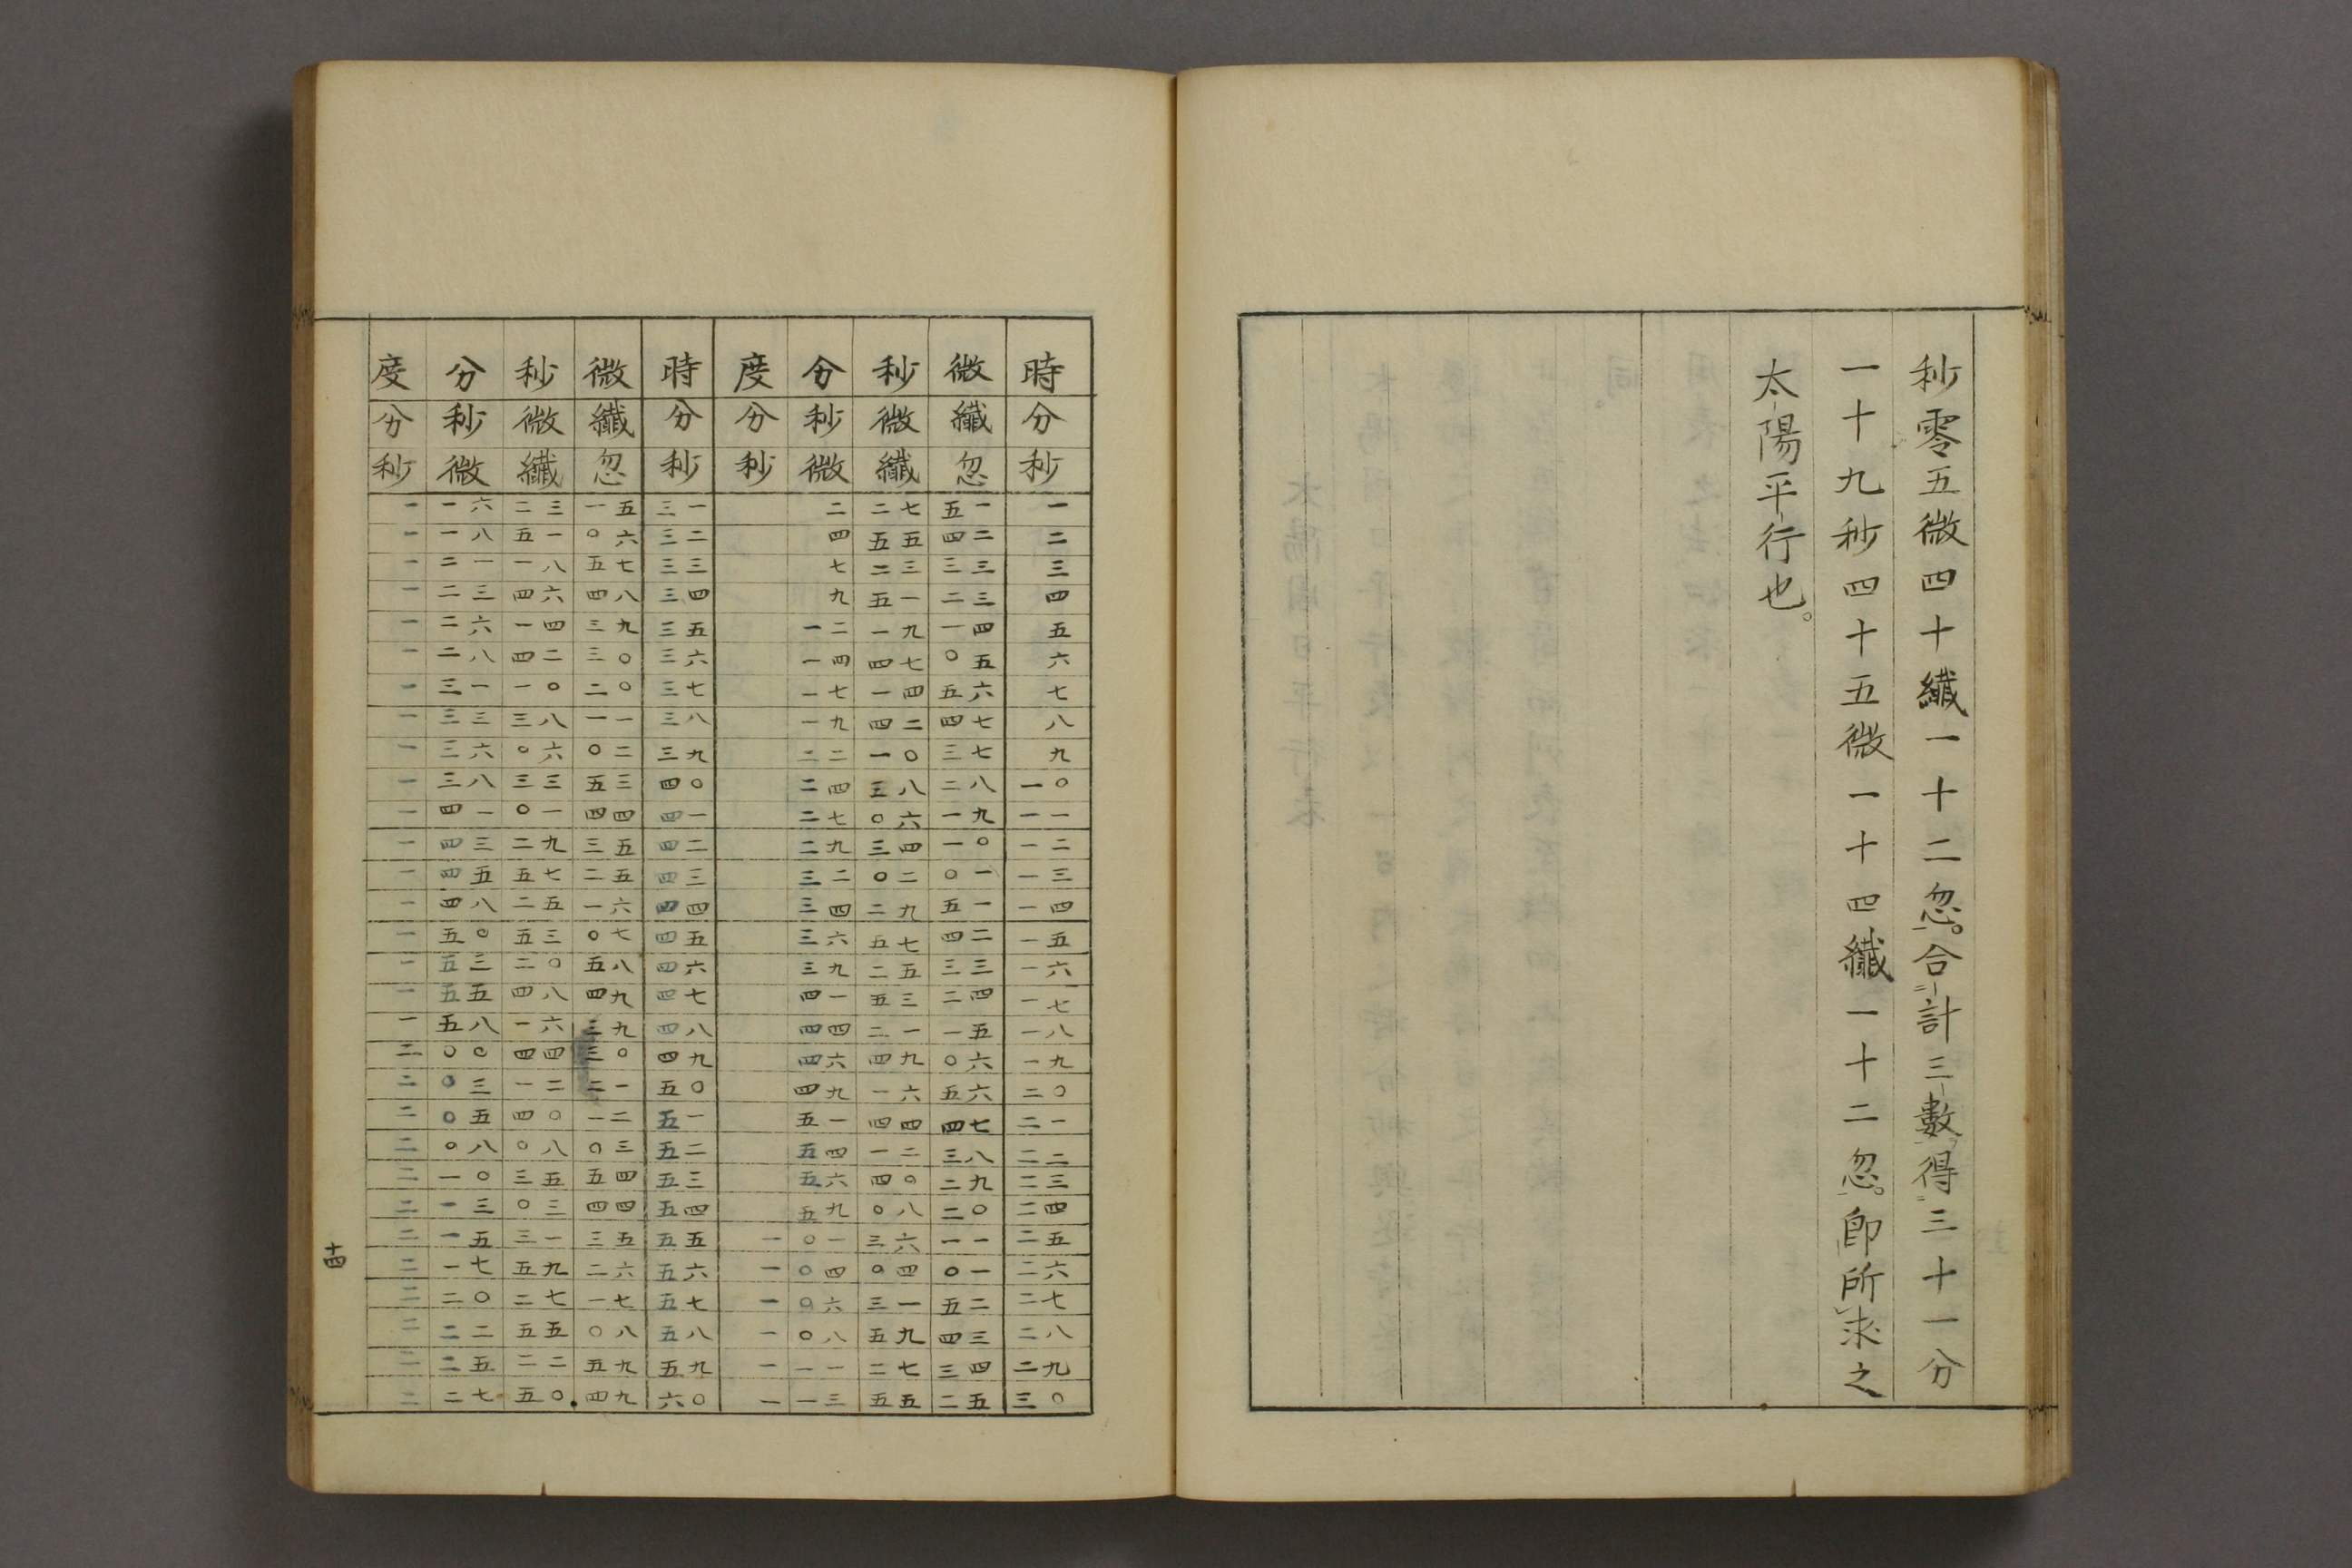 秒零五微四十纖一十二忽。合計三數得三十一分
一十九秒四十五微一十四纖一十二忽。即所求之
太陽平行也。
時 分 秒 一 二 三 四 五 六 七 八 九 一〇 一一 一二 一三 一四 一五 一六 一七 一八 一九 二〇 二一 二二 二三 二四 二五 二六 二七 二八 二九 三〇
微 纖 忽 五一 四二 三三 二三 一四 〇五 五六 四七 三七 二八 一九 一〇 〇一 五一 四二 三三 二四 一五 〇六 五六 四七 三八 二九 二〇 一一 〇一 五二 四三 三四 二五
秒 微 纖 二七 五五 二三 五一 一九 四七 一四 四二 一〇 三八 〇六 三四 〇二 二九 五七 二五 五三 二一 四九 一六 四四 一二 四〇 〇八 三六 〇四 三一 五九 二七 五五
分 秒 微 二 四 七 九 一二 一四 一七 一九 二二 二四 二七 二九 三二 三四 三六 三九 四一 四四 四六 四九 五一 五四 五六 五九 〇一 〇四 〇六 〇八 一一 一三
度 分 秒 一 一 一 一 一 一
時 分 秒 三一 三二 三三 三四 三五 三六 三七 三八 三九 四〇 四一 四二 四三 四四 四五 四六 四七 四八 四九 五〇 五一 五二 五三 五四 五五 五六 五七 五八 五九 六〇
微 纖 忽 一五 〇六 五七 四八 三九 三〇 二〇 一一 〇二 五三 四四 三五 二五 一六 〇七 五八 四九 三九 三〇 二一 一二 〇三 五四 四四 三五 二六 一七 〇八 五九 四九
秒 微 纖 二三 五一 一八 四六 一四 四二 一〇 三八 〇六 三三 〇一 二九 五七 二五 五三 二〇 四八 一六 四四 一二 四〇 〇八 三五 〇三 三一 五九 二七 五五 二二 五〇
分 秒 微 一六 一八 二一 二三 二六 二八 三一 三三 三六 三八 四一 四三 四五 四八 五〇 五三 五五 五八 〇〇 〇三 〇五 〇八 一〇 一三 一五 一七 二〇 二二 二五 二七
度 分 秒 一 一 一 一 一 一 一 一 一 一 一 一 一 一 一 一 一 一 二 二 二 二 二 二 二 二 二 二 二 二
十四